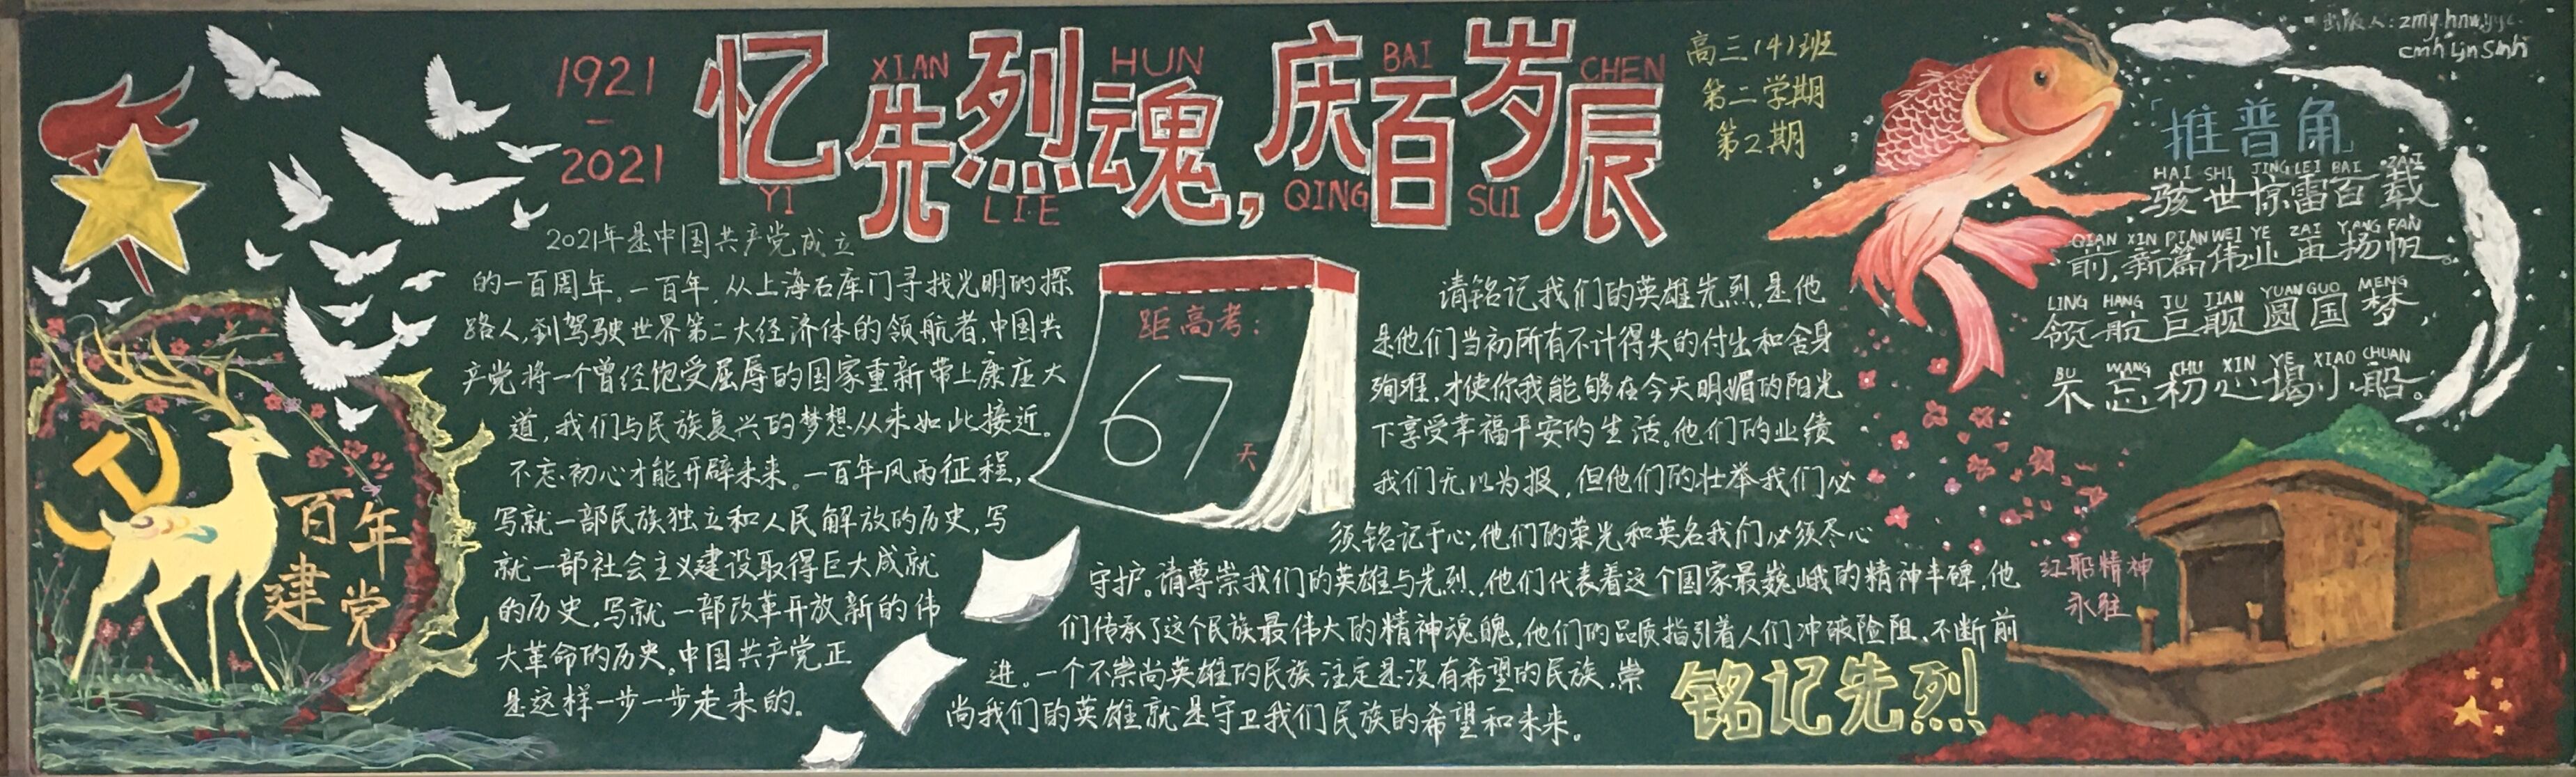 1921
—
2021
忆先烈魂,庆百岁辰
YI XIAN LIE HUN QING BAI SUI CHEN
高三(4)班
第二学期
第2期
2021年是中国共产党成立
的一百周年。一百年,从上海石库门寻找光明的探
路人,到驾驶世界第二大经济体的领航者,中国共
产党将一个曾经饱受屈辱的国家重新带上康庄大
道,我们与民族复兴的梦想从未如此接近。
不忘初心才能开辟未来。一百年风雨征程,
写就一部民族独立和人民解放的历史,写
就一部社会主义建设取得巨大成就
的历史,写就一部改革开放新的伟
大革命的历史。中国共产党正
是这样一步一步走来的。
百年
建党
距高考:
67
天
请铭记我们的英雄先烈,是他
是他们当初所有不计得失的付出和舍身
殉难,才使你我能够在今天明媚的阳光
下享受幸福平安的生活。他们的业绩
我们无以为报,但他们的壮举我们必
须铭记于心,他们的荣光和英名我们必须尽心
守护。请尊崇我们的英雄与先烈,他们代表着这个国家最巍峨的精神丰碑,他
们传承了这个民族最伟大的精神魂魄,他们的品质指引着人们冲破险阻、不断前
进。一个不崇尚英雄的民族注定是没有希望的民族,崇
尚我们的英雄就是守卫我们民族的希望和未来。
铭记先烈
出版人:zmy.hnw.yyc.
「推普角」
HAI SHI JING LEI BAI ZAI
骇世惊雷百载
QIAN XIN PIAN WEI YE ZAI YANG FAN
前,新篇伟业再扬帆。
LING HANG JU JIAN YUAN GUO MENG
领航巨舰圆国梦,
BU WANG CHU XIN YE XIAO CHUAN
不忘初心谒小船。
红船精神
永驻